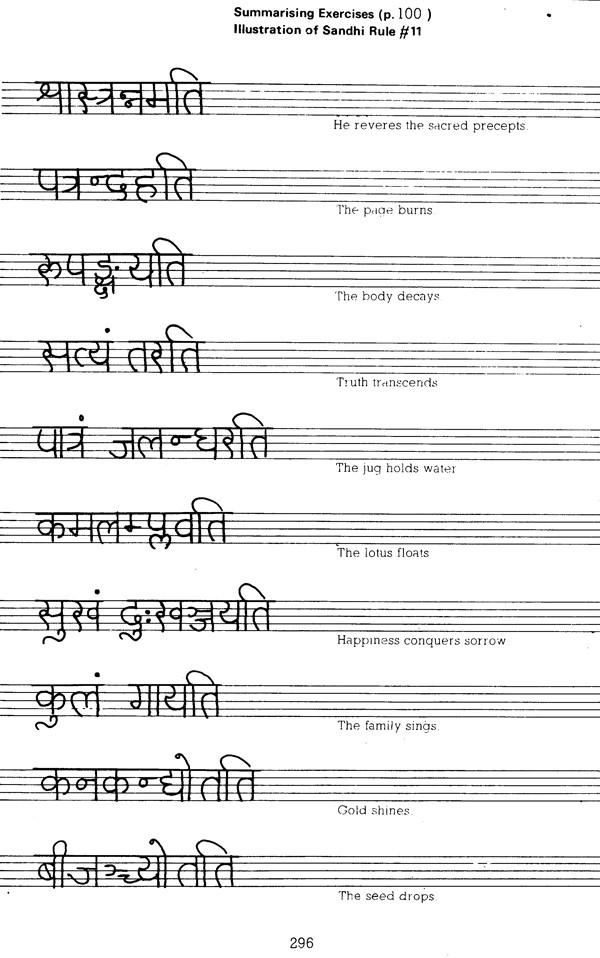 Summarising Exercises (p. 100 )
Illustration of Sandhi Rule #11
श्रास्त्रन्नमति
He reveres the sacred precepts.
पत्रन्दहति
The page burns.
रूपङ्क्षयति
The body decays.
सत्यं तरति
Truth transcends
पात्रं जलन्धरति
The jug holds water
कमलम्प्लवति
The lotus floats
सुखं दुःखञ्जयति
Happiness conquers sorrow
कुलं गायति
The family sings.
कनकन्द्योतति
Gold shines.
बीजञ्च्योतति
The seed drops.
296